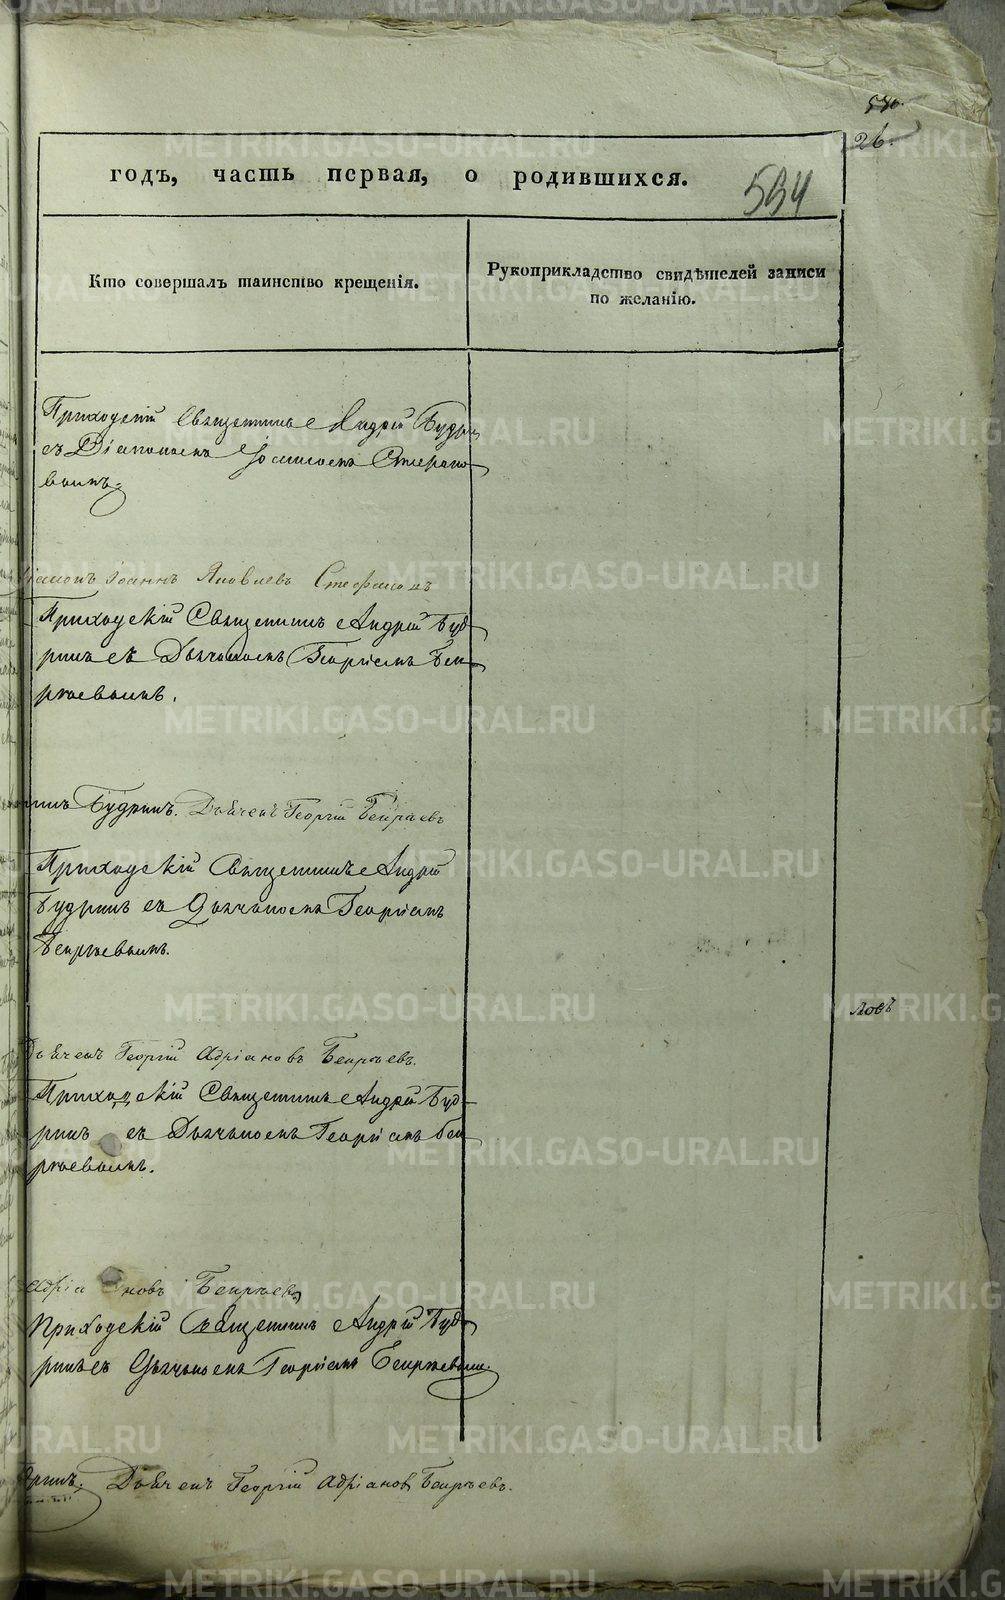 570.
26.
годъ, часть первая, о родившихся.
594
Кто совершалъ таинство крещенія.
Рукоприкладство свидѣтелей записи
по желанію.
Приходскій Священникъ Андрей Будри
съ Діакономъ Іоанномъ Стефано
вымъ.
Діаконъ Іоаннъ Яковлевъ Стефановъ
Приходскій Священникъ Андрей Буд-
ринъ съ Дьячькомъ Георгіемъ
Будринъ. Дьячекъ Георгій
Приходскій Священникъ Андрей
Будринъ съ Дьячькомъ Георгіемъ
ловъ
Дьячекъ Георгій Адріановъ
Приходскій Священникъ Андрей Буд-
ринъ съ Дьячькомъ Георгіемъ
Адріановъ
Приходскій Священникъ Андрей Буд-
ринъ съ Дьячькомъ Георгіемъ
Дьячекъ Георгій Адріановъ
METRIKI.GASO-URAL.RU